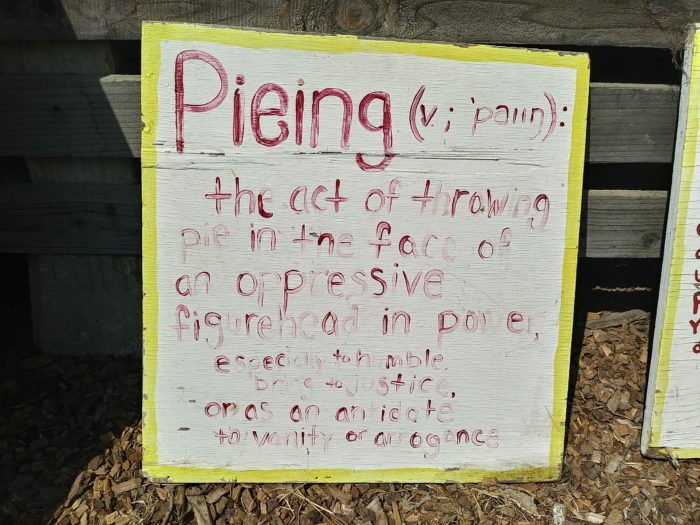 Pieing (v.; 'paɪɪŋ):
the act of throwing
pie in the face of
an oppressive
figurehead in power,
especially to humble,
bring to justice,
or as an antidote
to vanity or arrogance